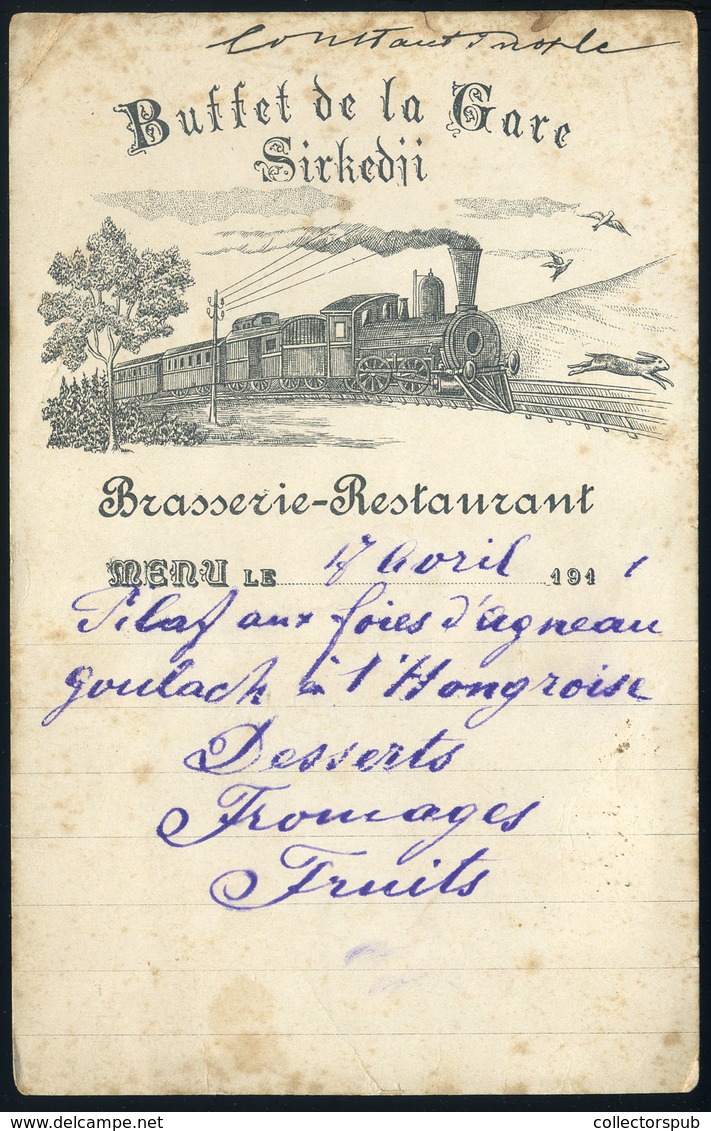 Constantinople
Buffet de la Gare
Sirkedji
Brasserie-Restaurant
MENU LE 17 Avril 1911
Pilaf aux foies d'agneau
Goulach à l'Hongroise
Desserts
Fromages
Fruits
DELCAMPE.NET
collectorspub